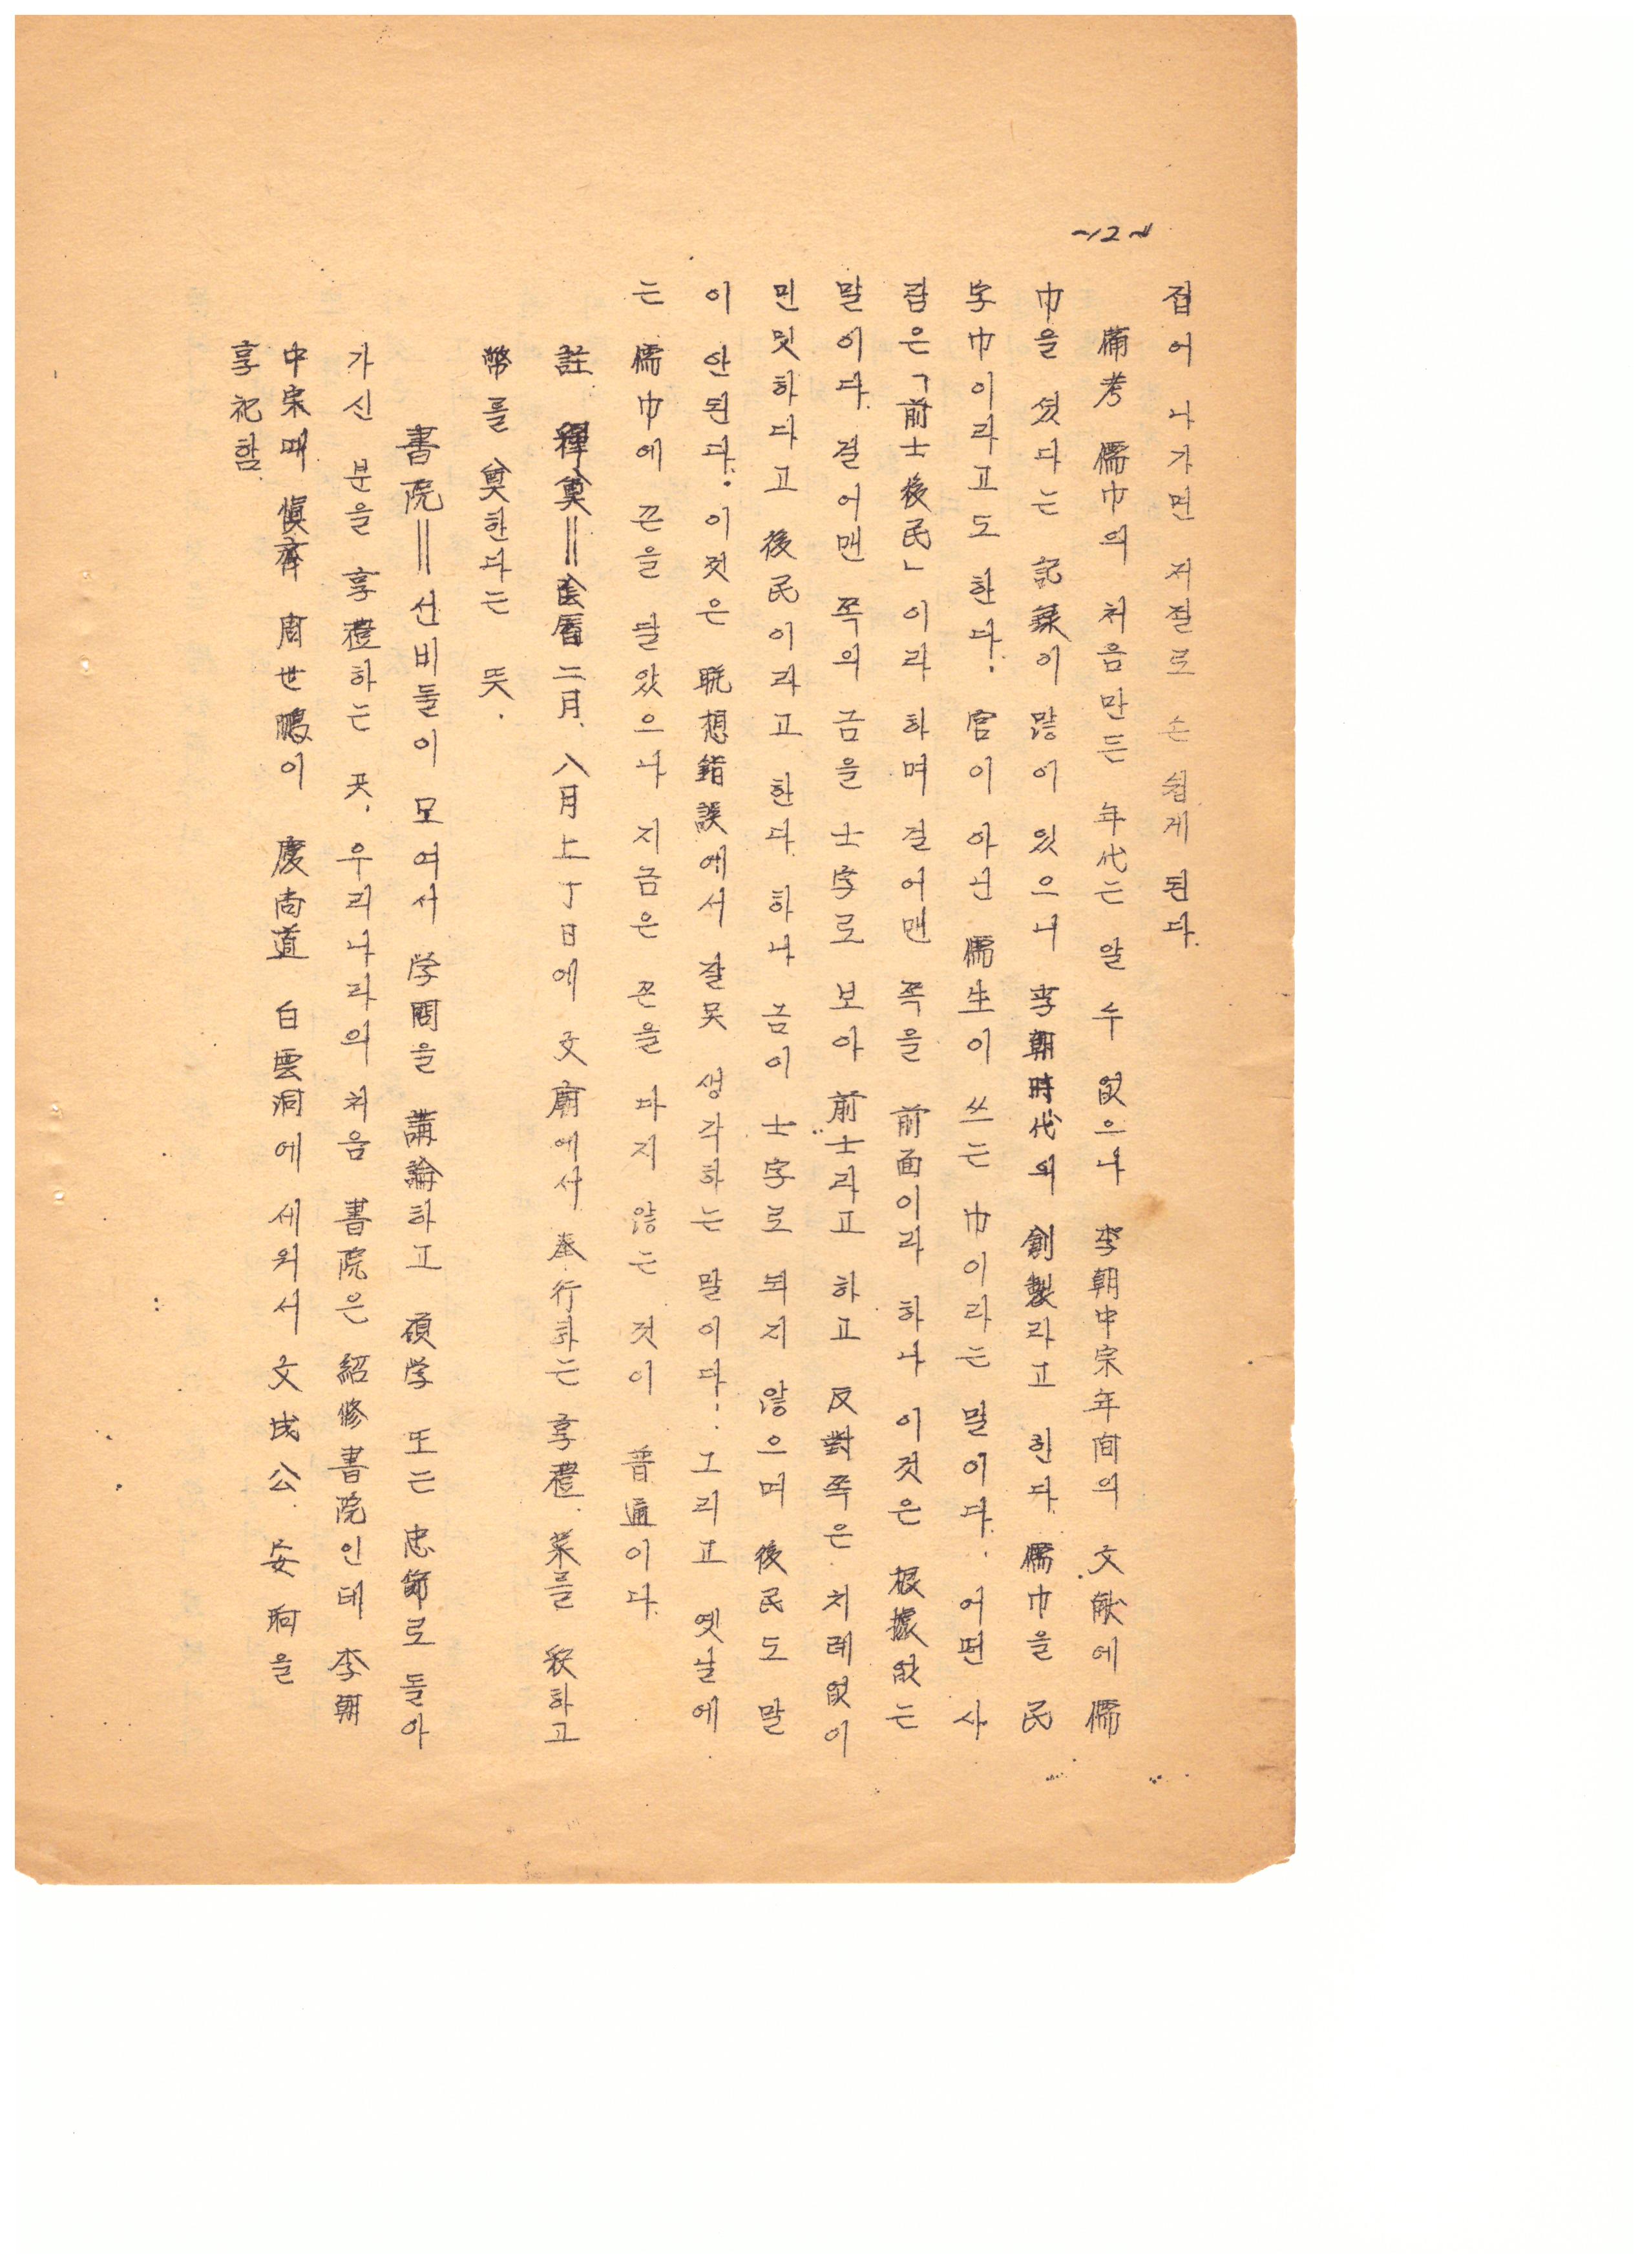 ~12~
접어 나가면 저절로 손쉽게 된다.
備考 儒巾의 처음만든 年代는 알 수 없으나 李朝中宗年间의 文献에 儒
巾을 썼다는 記録이 많이 있으니 李朝時代의 創製라고 한다. 儒巾을 民
字巾이라고도 한다. 官이 아닌 儒生이 쓰는 巾이라는 말이다. 어떤 사
람은「前士後民」이라 하며 결어맨 쪽을 前面이라 하나 이것은 根據없는
말이다. 결어맨 쪽의 금을 士字로 보아 前士라고 하고 反對쪽은 치레없이
민밋하다고 後民이라고 한다. 하나 금이 士字로 되지 않으며 後民도 말
이 안된다. 이것은 聯想錯誤에서 잘못 생각하는 말이다. 그리고 옛날에
는 儒巾에 끈을 달았으나 지금은 끈을 다지 않는 것이 普通이다.
註 釋奠=陰曆二月. 八月上丁日에 文廟에서 奉行하는 享禮. 菜를 釈하고
幣를 奠한다는 뜻.
書院=선비들이 모여서 学問을 講論하고 碩学 또는 忠節로 돌아
가신 분을 享禮하는 곳. 우리나라의 처음 書院은 紹修書院인데 李朝
中宗때 愼齊 周世鵬이 慶尚道 白雲洞에 세워서 文成公. 安珦을
享祀함.